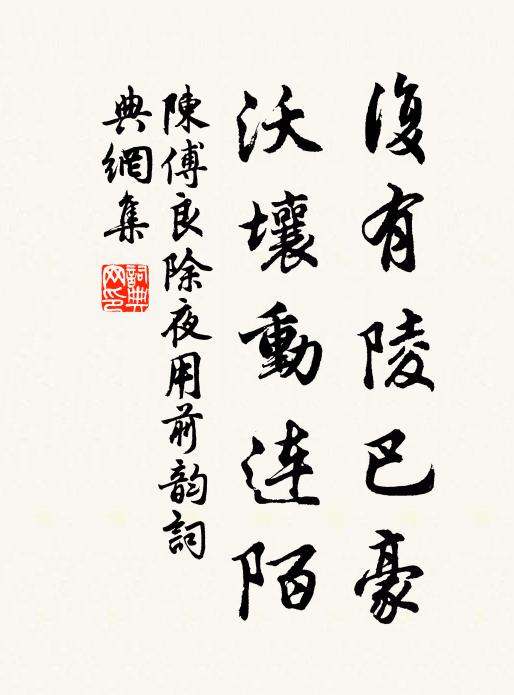 復有陵巴豪
沃壤動连陌
陳傅良除夜用前韵詞
典網集
詞典网印